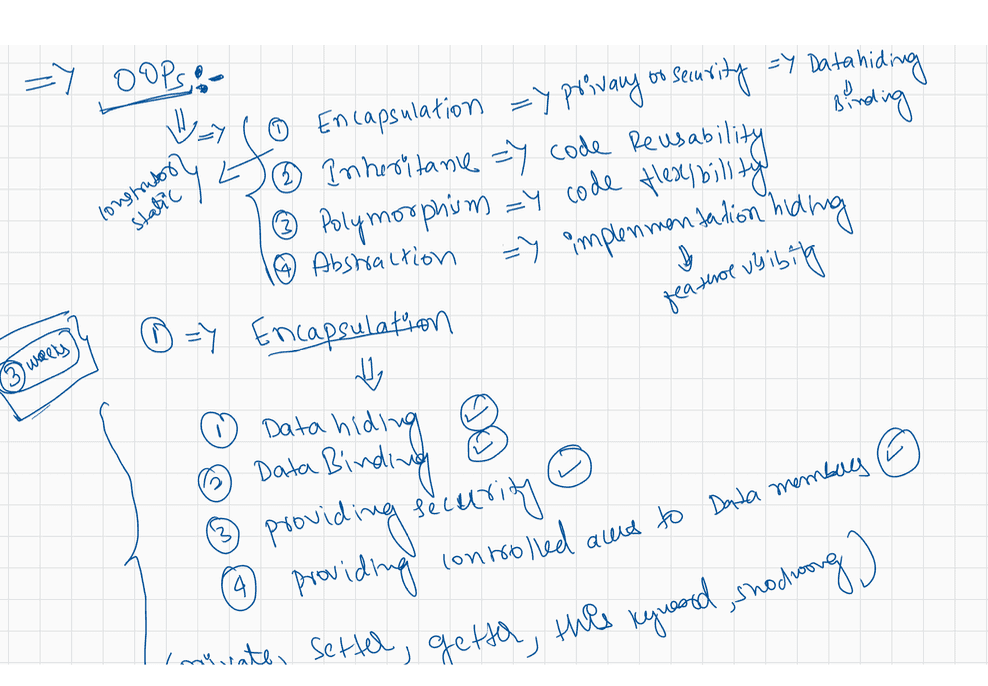 => OOPs :-
① Encapsulation => privacy or security => Datahiding
Binding
② Inheritance => code Reusability
③ Polymorphism => code flexibility
④ Abstraction => implenmentation hiding
feature visibity
=>
constructor
static
① => Encapsulation
③ weeks
① Data hiding
② Data Binding
③ providing security
④ providing controlled access to Data members
(private, setter, getter, this keyword, shadowing)